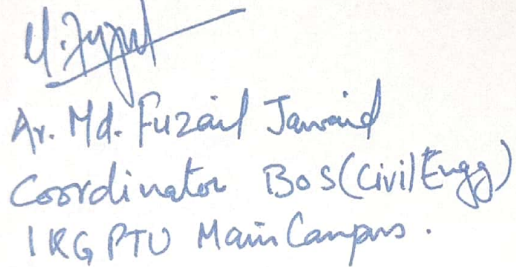 Ar. Md. Fuzail Jawaid
Coordinator BOS (Civil Engg)
IKG PTU Main Campus.